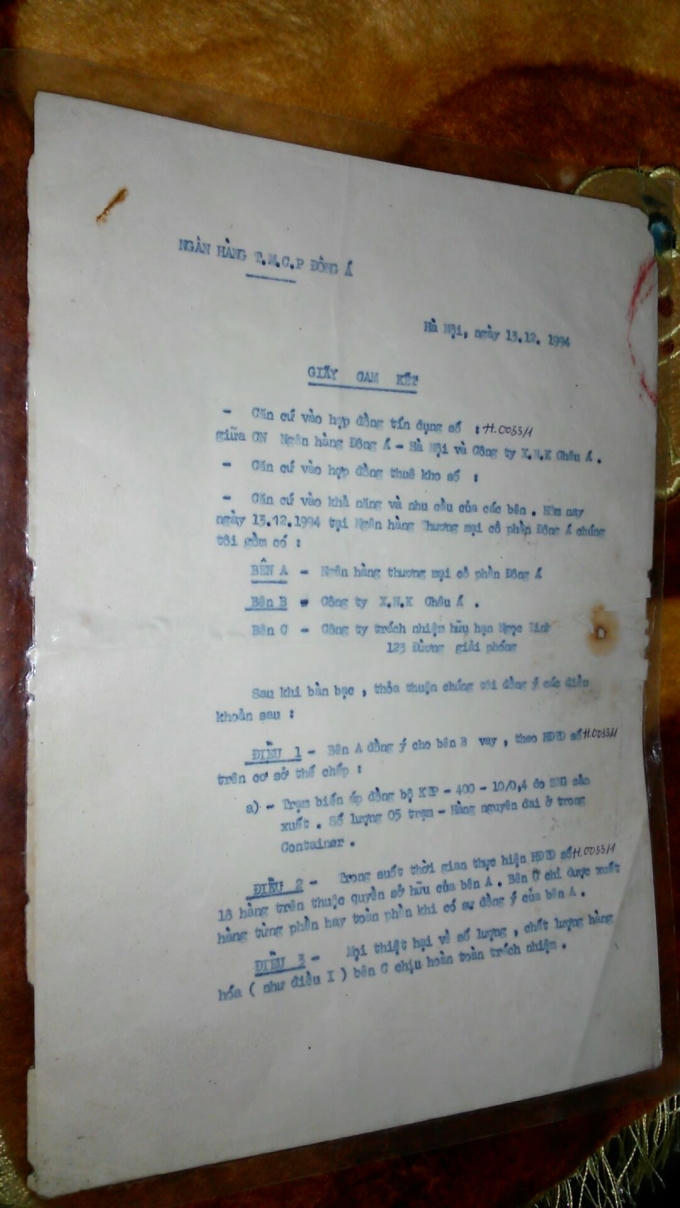 NGÂN HÀNG T.M.C.P ĐÔNG Á
Hà Nội, ngày 13.12. 1994
GIẤY CAM KẾT
- Căn cứ vào hợp đồng tín dụng số : H.0033/1
giữa CN Ngân hàng Đông Á - Hà Nội và Công ty X.N.K Châu Á .
- Căn cứ vào hợp đồng thuê kho số :
- Căn cứ vào khả năng và nhu cầu của các bên . Hôm nay
ngày 13.12.1994 tại Ngân hàng Thương mại cổ phần Đông Á chúng
tôi gồm có :
BÊN A - Ngân hàng thương mại cổ phần Đông Á
Bên B - Công ty X.N.K Châu Á .
Bên C - Công ty trách nhiệm hữu hạn Ngọc
123 Đường giải phóng
Sau khi bàn bạc , thỏa thuận chúng tôi đồng ý các điều
khoản sau :
ĐIỀU 1 - Bên A đồng ý cho bên B vay , theo HĐTD số H.0033/1
trên cơ sở thế chấp :
a) - Trạm biến áp đồng bộ - 400 - 10/0,4 do sản
xuất . Số lượng 05 trạm - Hàng nguyên đai ở trong
Container .
ĐIỀU 2 - Trong suốt thời gian thực hiện HĐTD số H.0033/1
lô hàng trên thuộc quyền sở hữu của bên A . Bên C chỉ được xuất
hàng từng phần hay toàn phần khi có sự đồng ý của bên A .
ĐIỀU 3 - Mọi thiệt hại về số lượng , chất lượng hàng
hóa ( như điều I ) bên C chịu hoàn toàn trách nhiệm .